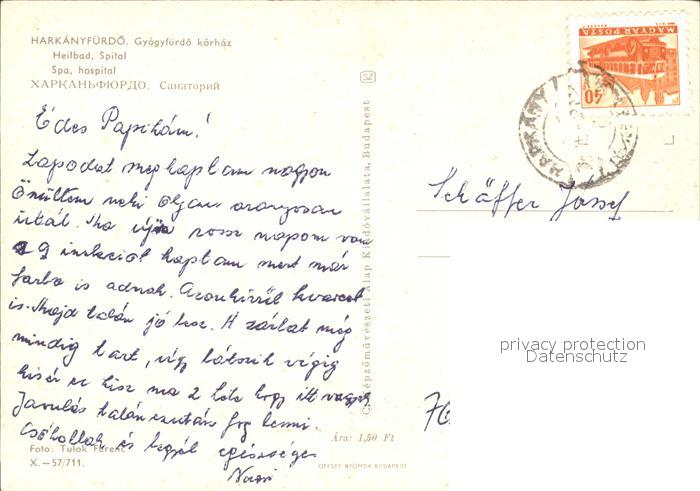 HARKÁNYFÜRDŐ. Gyógyfürdő kórház
Heilbad, Spital
Spa, hospital
ХАРКАНЬФЮРДО. Санаторий
Édes Papikám!
Lapodat megkaptam nagyon
örültem neki olyan aranyosan
írtál. Ma újra rossz napom van
9 injekciót kaptam mert már
is adnak. Azonkívül kvarcot
is. Majd talán jó lesz. A zárlat még
mindig tart, úgy látszik végig
kísér ez hisz ma 2 hete hogy itt vagyok
Javulás talán ezután fog lenni.
Csókollak és legyél egészséges
Foto: Tulok Ferenc
X.—57/711.
Ára: 1,50 Ft
OFFSET-NYOMDA, BUDAPEST
Képzőművészeti Alap Kiadóvállalata, Budapest
SZ
MAGYAR POSTA
40
HARKÁNY
Schäffer József
privacy protection
Datenschutz